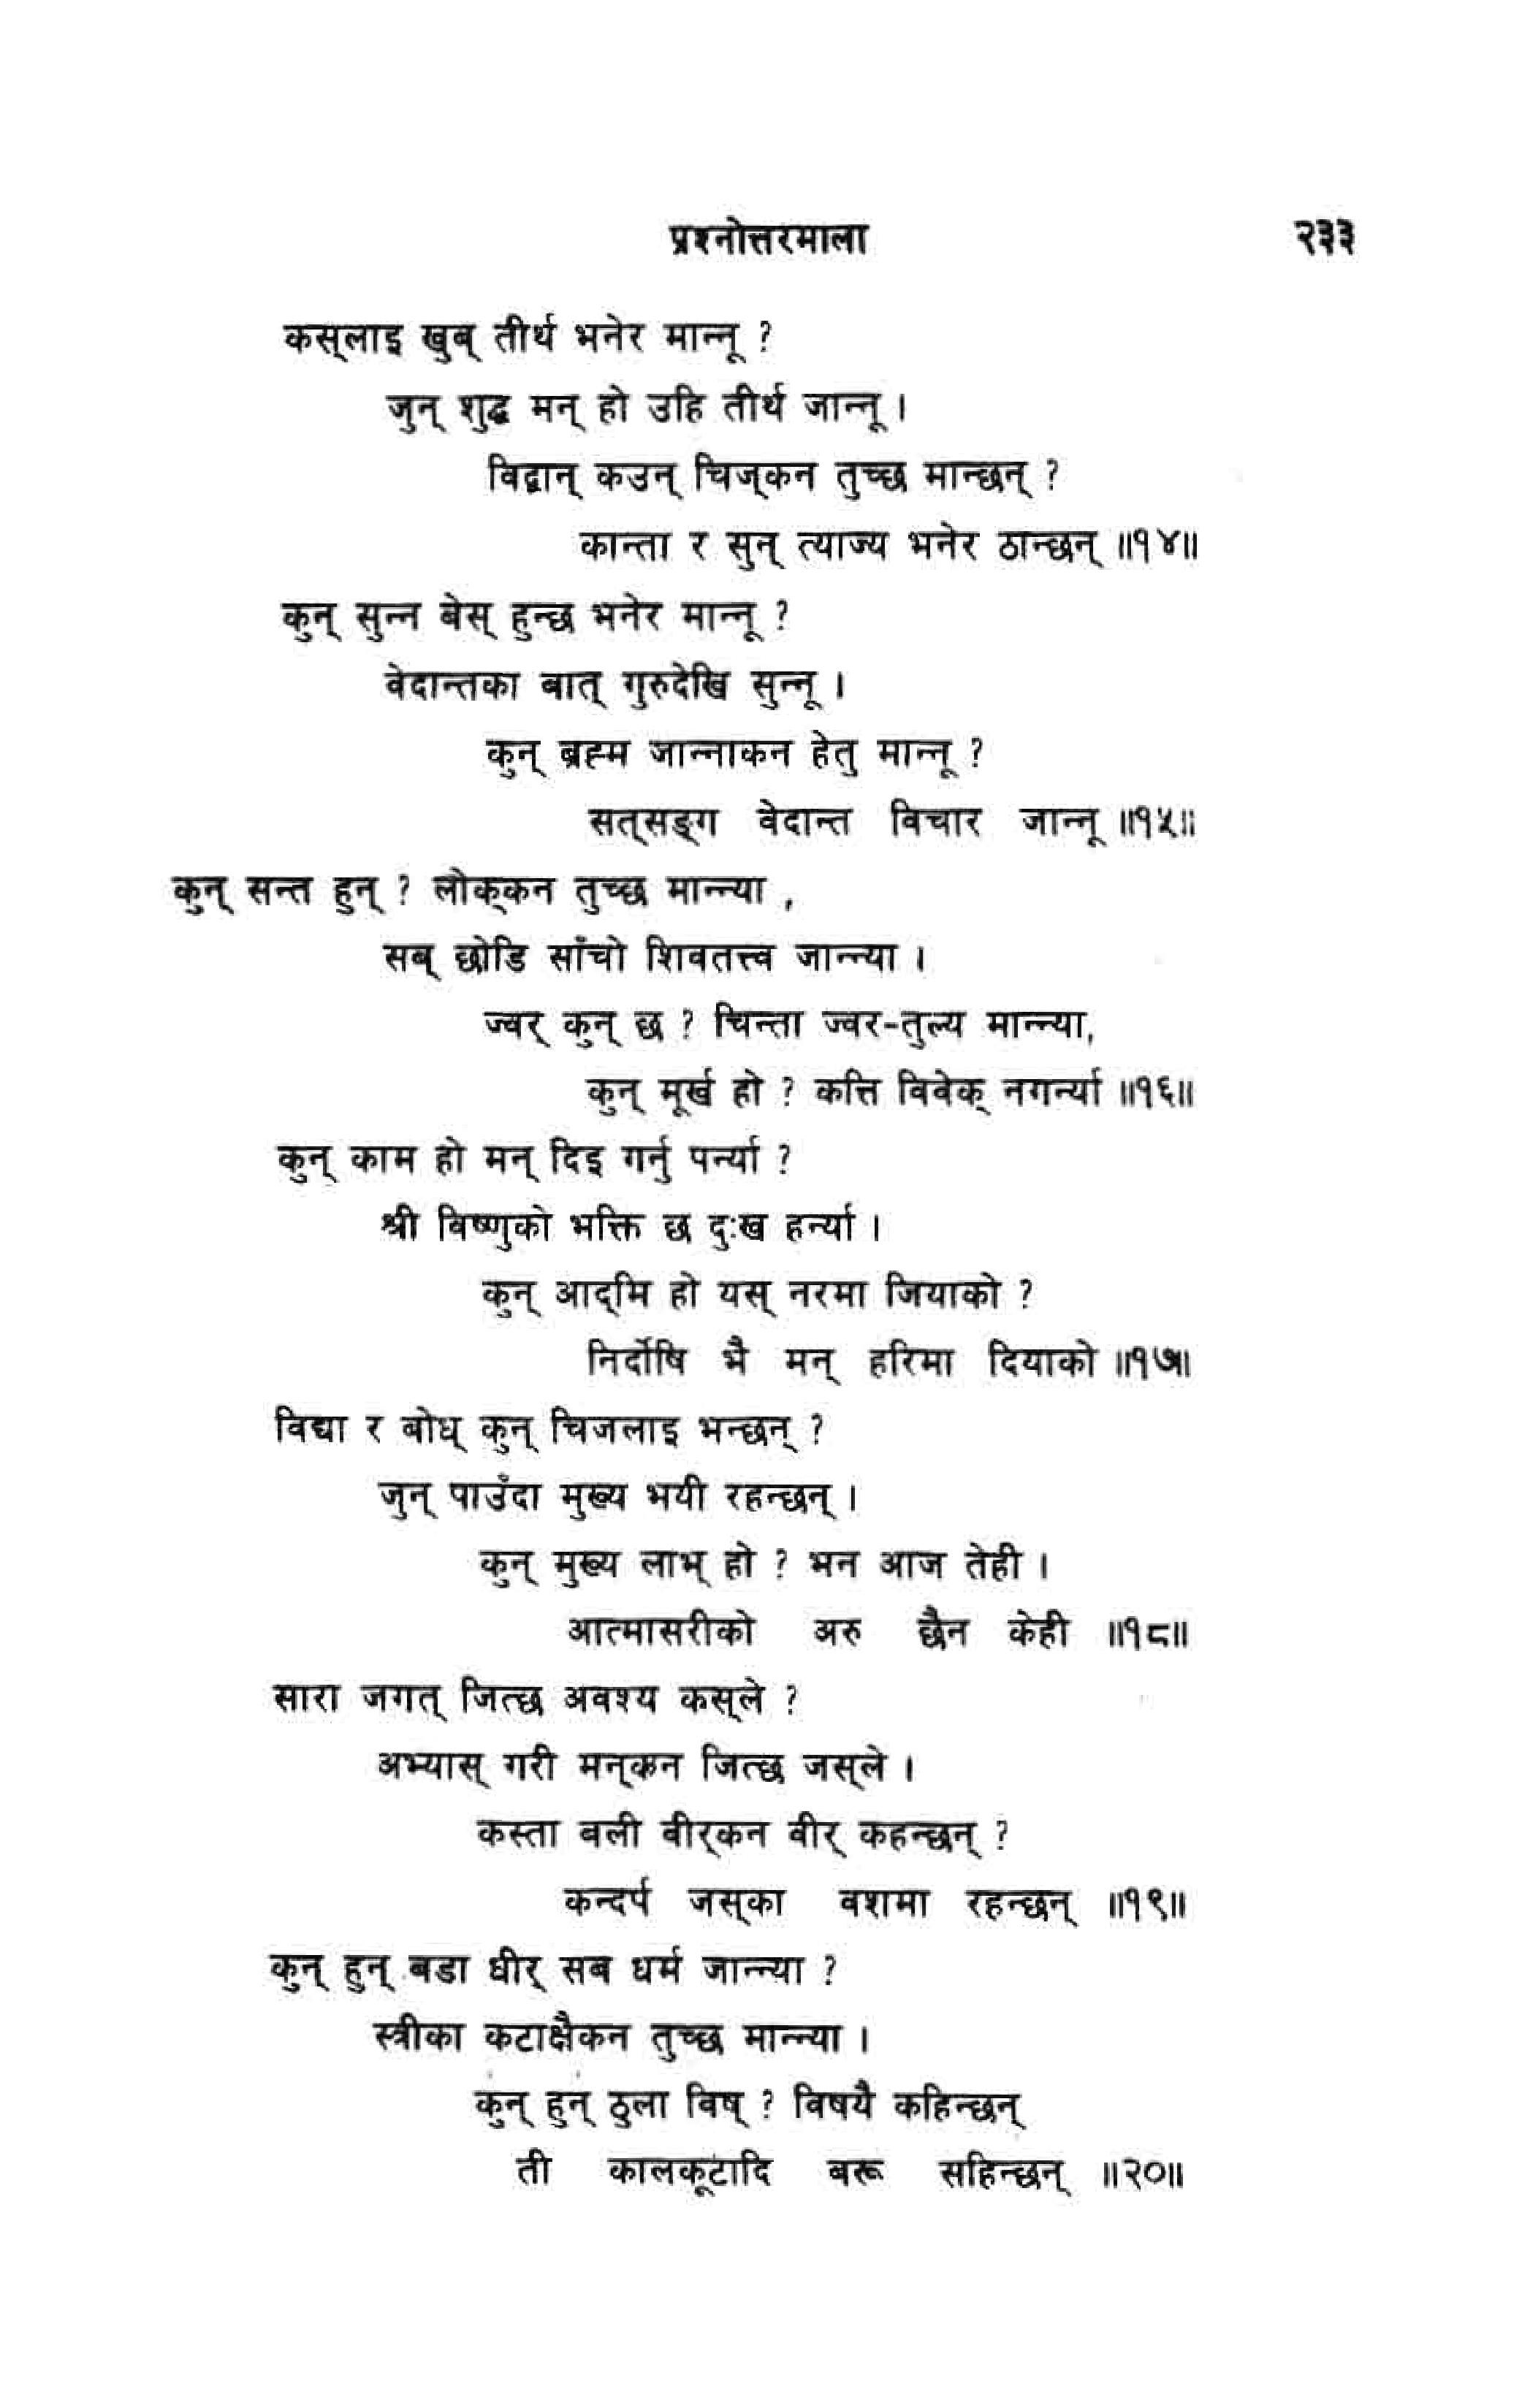 प्रश्नोत्तरमाला २३३
कस्‌लाइ खुब् तीर्थ भनेर मान्नू ?
जुन् शुद्ध मन् हो उहि तीर्थ जान्नू ।
विद्वान् कउन् चिज्‌कन तुच्छ मान्छन् ?
कान्ता र सुन् त्याज्य भनेर ठान्छन् ॥१४॥
कुन् सुन्न बेस् हुन्छ भनेर मान्नू ?
वेदान्तका बात् गुरुदेखि सुन्नू ।
कुन् ब्रह्म जान्नाकन हेतु मान्नू ?
सत्‌सङ्ग वेदान्त विचार जान्नू ॥१५॥
कुन् सन्त हुन् ? लोक्‌कन तुच्छ मान्न्या ,
सब् छोडि साँचो शिवतत्त्व जान्न्या ।
ज्वर् कुन् छ ? चिन्ता ज्वर-तुल्य मान्न्या,
कुन् मूर्ख हो ? कत्ति विवेक् नगर्न्या ॥१६॥
कुन् काम हो मन् दिइ गर्नु पर्न्या ?
श्री विष्णुको भक्ति छ दुःख हर्न्या ।
कुन् आद्‌मि हो यस् नरमा जियाको ?
निर्दोषि भै मन् हरिमा दियाको ॥१७॥
विद्या र बोध् कुन् चिजलाइ भन्छन् ?
जुन् पाउँदा मुख्य भयी रहन्छन् ।
कुन् मुख्य लाभ् हो ? भन आज तेही ।
आत्मासरीको अरु छैन केही ॥१८॥
सारा जगत् जित्छ अवश्य कस्‌ले ?
अभ्यास् गरी मन्‌कन जित्छ जस्‌ले ।
कस्ता बली वीर्‌कन वीर् कहन्छन् ?
कन्दर्प जस्‌का वशमा रहन्छन् ॥१९॥
कुन् हुन् बडा धीर् सब धर्म जान्न्या ?
स्त्रीका कटाक्षैकन तुच्छ मान्न्या ।
कुन् हुन् ठुला विष् ? विषयै कहिन्छन्
ती कालकूटादि बरू सहिन्छन् ॥२०॥